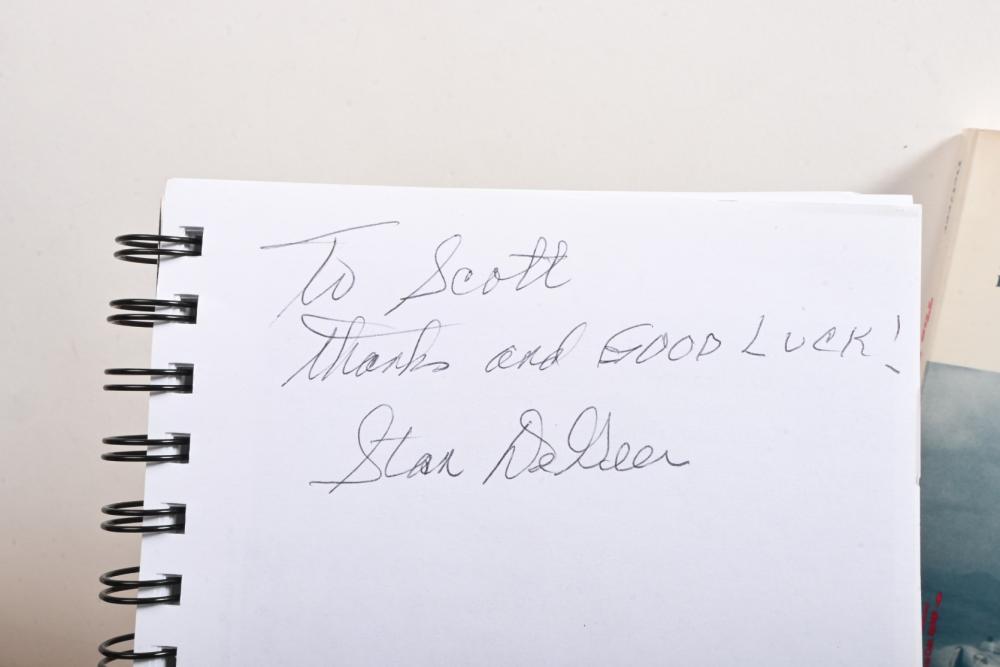 To Scott
Thanks and GOOD LUCK!
Stan DeGeer